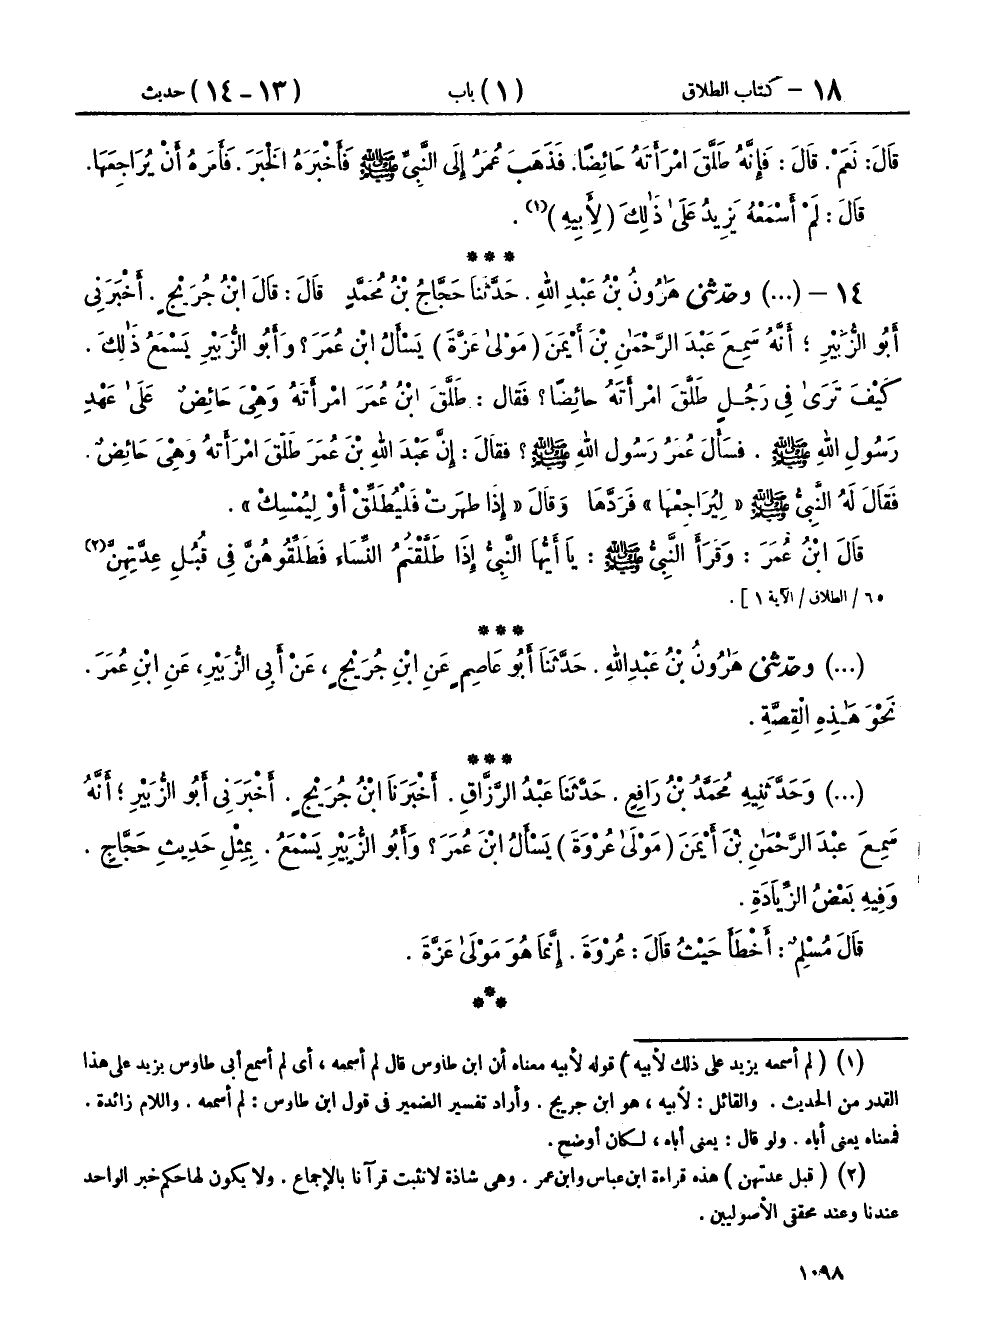 ١٨ - كتاب الطلاق (١) باب (١٣-١٤) حديث
قَالَ: نَعَمْ. قَالَ: فَإِنَّهُ طَلَّقَ امْرَأَتَهُ حَائِضًا. فَذَهَبَ عُمَرُ إِلَى النَّبِيِّ ﷺ فَأَخْبَرَهُ الْخَبَرَ. فَأَمَرَهُ أَنْ يُرَاجِعَهَا.
قَالَ: لَمْ أَسْمَعْهُ يَزِيدُ عَلَىٰ ذٰلِكَ (لِأَبِيهِ)(١).
* * *
١٤ - (...) وحدّثنى هَٰرُونُ بْنُ عَبْدِ اللهِ. حَدَّثَنَا حَجَّاجُ بْنُ مُحَمَّدٍ قَالَ: قَالَ ابْنُ جُرَيْجٍ. أَخْبَرَنِى
أَبُو الزُّبَيْرِ؛ أَنَّهُ سَمِعَ عَبْدَ الرَّحْمَٰنِ بْنَ أَيْمَنَ (مَوْلَىٰ عَزَّةَ) يَسْأَلُ ابْنَ عُمَرَ؟ وَأَبُو الزُّبَيْرِ يَسْمَعُ ذٰلِكَ.
كَيْفَ تَرَىٰ فِى رَجُلٍ طَلَّقَ امْرَأَتَهُ حَائِضًا؟ فَقَالَ: طَلَّقَ ابْنُ عُمَرَ امْرَأَتَهُ وَهْىَ حَائِضٌ عَلَىٰ عَهْدِ
رَسُولِ اللهِ ﷺ. فَسَأَلَ عُمَرُ رَسُولَ اللهِ ﷺ؟ فَقَالَ: إِنَّ عَبْدَ اللهِ بْنَ عُمَرَ طَلَّقَ امْرَأَتَهُ وَهْىَ حَائِضٌ.
فَقَالَ لَهُ النَّبِىُّ ﷺ «لِيُرَاجِعْهَا» فَرَدَّهَا وَقَالَ «إِذَا طَهَرَتْ فَلْيُطَلِّقْ أَوْ لِيُمْسِكْ».
قَالَ ابْنُ عُمَرَ: وَقَرَأَ النَّبِىُّ ﷺ: يَا أَيُّهَا النَّبِىُّ إِذَا طَلَّقْتُمُ النِّسَاءَ فَطَلِّقُوهُنَّ فِى قُبُلِ عِدَّتِهِنَّ(٢)
٦٥ / الطلاق / الآية ١].
* * *
(...) وحدّثنى هَٰرُونُ بْنُ عَبْدِ اللهِ. حَدَّثَنَا أَبُو عَاصِمٍ عَنِ ابْنِ جُرَيْجٍ، عَنْ أَبِى الزُّبَيْرِ، عَنِ ابْنِ عُمَرَ.
نَحْوَ هَٰذِهِ الْقِصَّةِ.
* * *
(...) وَحَدَّثَنِيهِ مُحَمَّدُ بْنُ رَافِعٍ. حَدَّثَنَا عَبْدُ الرَّزَّاقِ. أَخْبَرَنَا ابْنُ جُرَيْجٍ. أَخْبَرَنِى أَبُو الزُّبَيْرِ؛ أَنَّهُ
سَمِعَ عَبْدَ الرَّحْمَٰنِ بْنَ أَيْمَنَ (مَوْلَىٰ عُرْوَةَ) يَسْأَلُ ابْنَ عُمَرَ؟ وَأَبُو الزُّبَيْرِ يَسْمَعُ. بِمِثْلِ حَدِيثِ حَجَّاجٍ.
وَفِيهِ بَعْضُ الزِّيَادَةِ.
قَالَ مُسْلِمٌ: أَخْطَأَ حَيْثُ قَالَ: عُرْوَةَ. إِنَّمَا هُوَ مَوْلَىٰ عَزَّةَ.
***
(١) (لم أسمعه يزيد على ذلك لأبيه) قوله لأبيه معناه أن ابن طاوس قال لم أسمعه، أى لم أسمع أبى طاوس يزيد على هذا
القدر من الحديث. والقائل: لأبيه، هو ابن جريج. وأراد تفسير الضمير فى قول ابن طاوس: لم أسمعه. واللام زائدة.
فمعناه يعنى أباه. ولو قال: يعنى أباه، لكان أوضح.
(٢) (قبل عدتهن) هذه قراءة ابن عباس وابن عمر. وهى شاذة لا تثبت قرآنا بالإجماع. ولا يكون لها حكم خبر الواحد
عندنا وعند محققى الأصوليين.
١٠٩٨